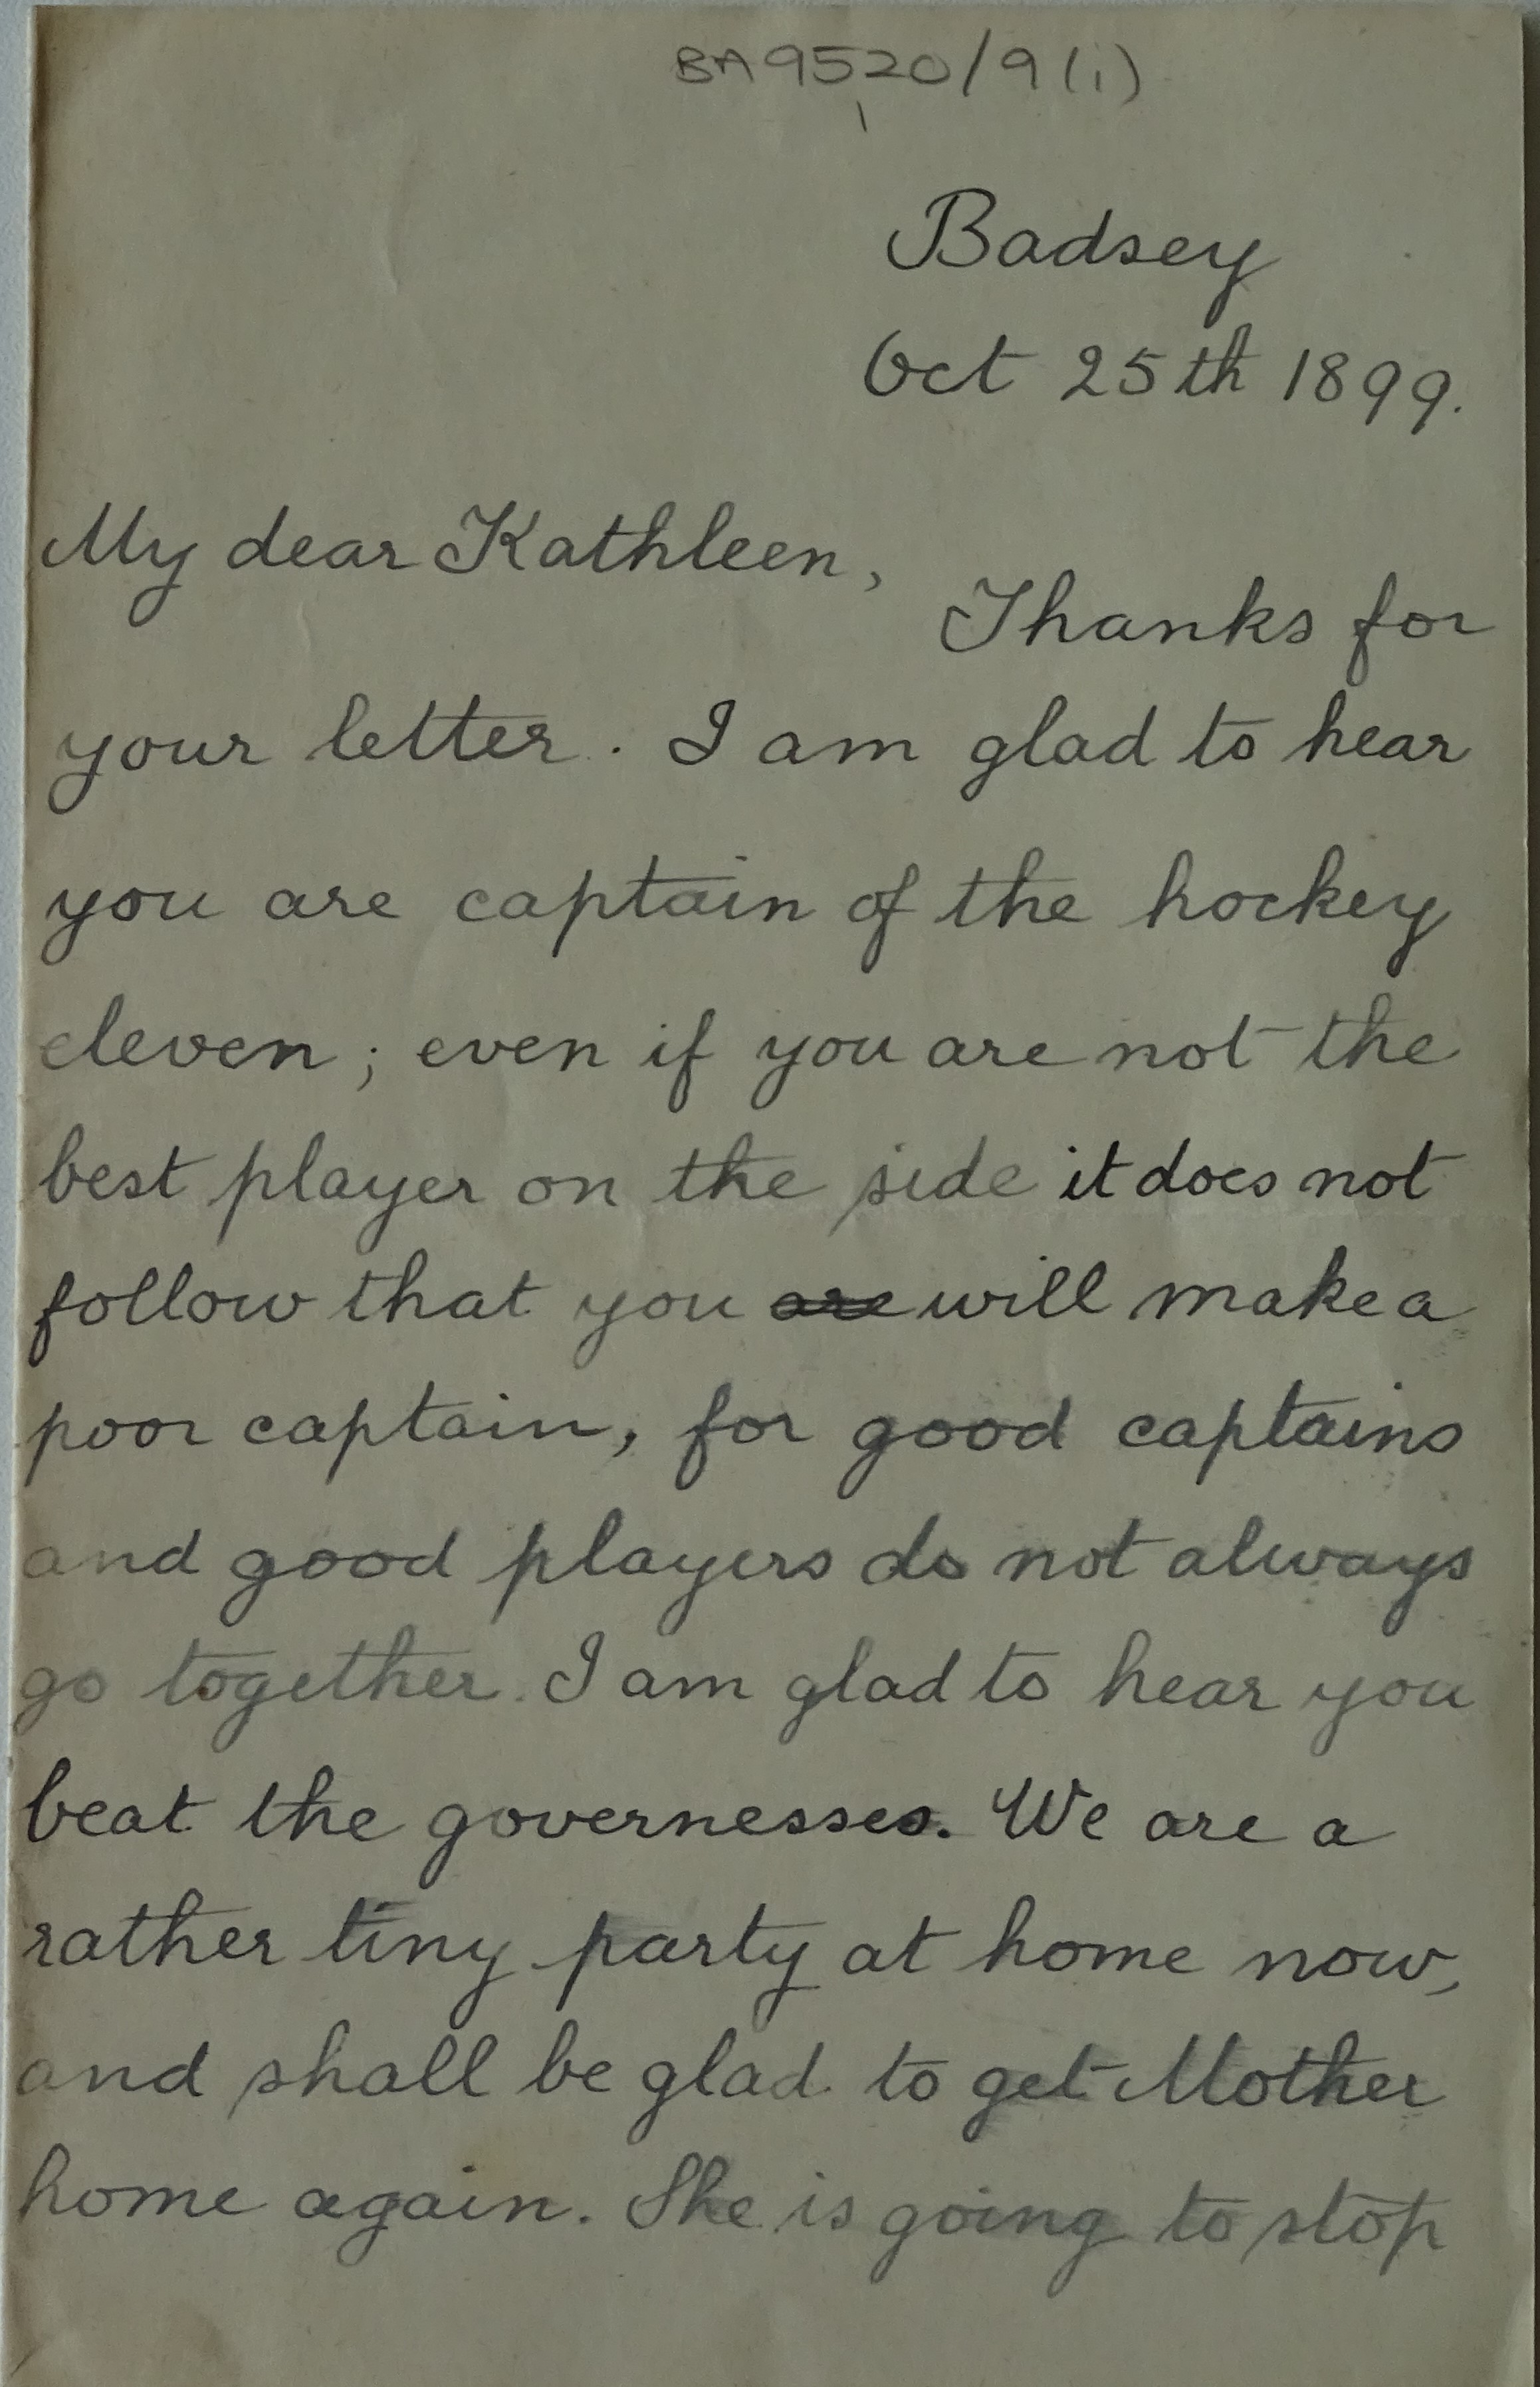 BA9520/9(i)
Badsey
Oct 25th 1899.
My dear Kathleen,
Thanks for
your letter. I am glad to hear
you are captain of the hockey
eleven; even if you are not the
best player on the side it does not
follow that you are will make a
poor captain, for good captains
and good players do not always
go together. I am glad to hear you
beat the governesses. We are a
rather tiny party at home now,
and shall be glad to get Mother
home again. She is going to stop